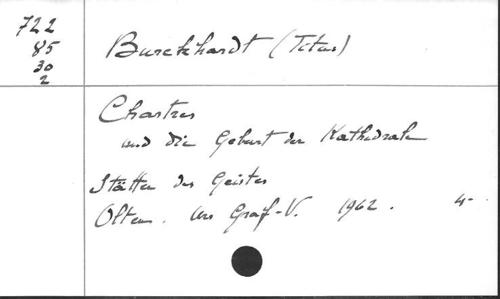 722
85
30
2
Burckhardt (Titus)
Chartres
und die Geburt der Kathedrale
Stätten des Geistes
Olten. Urs Graf-V. 1962. 4-